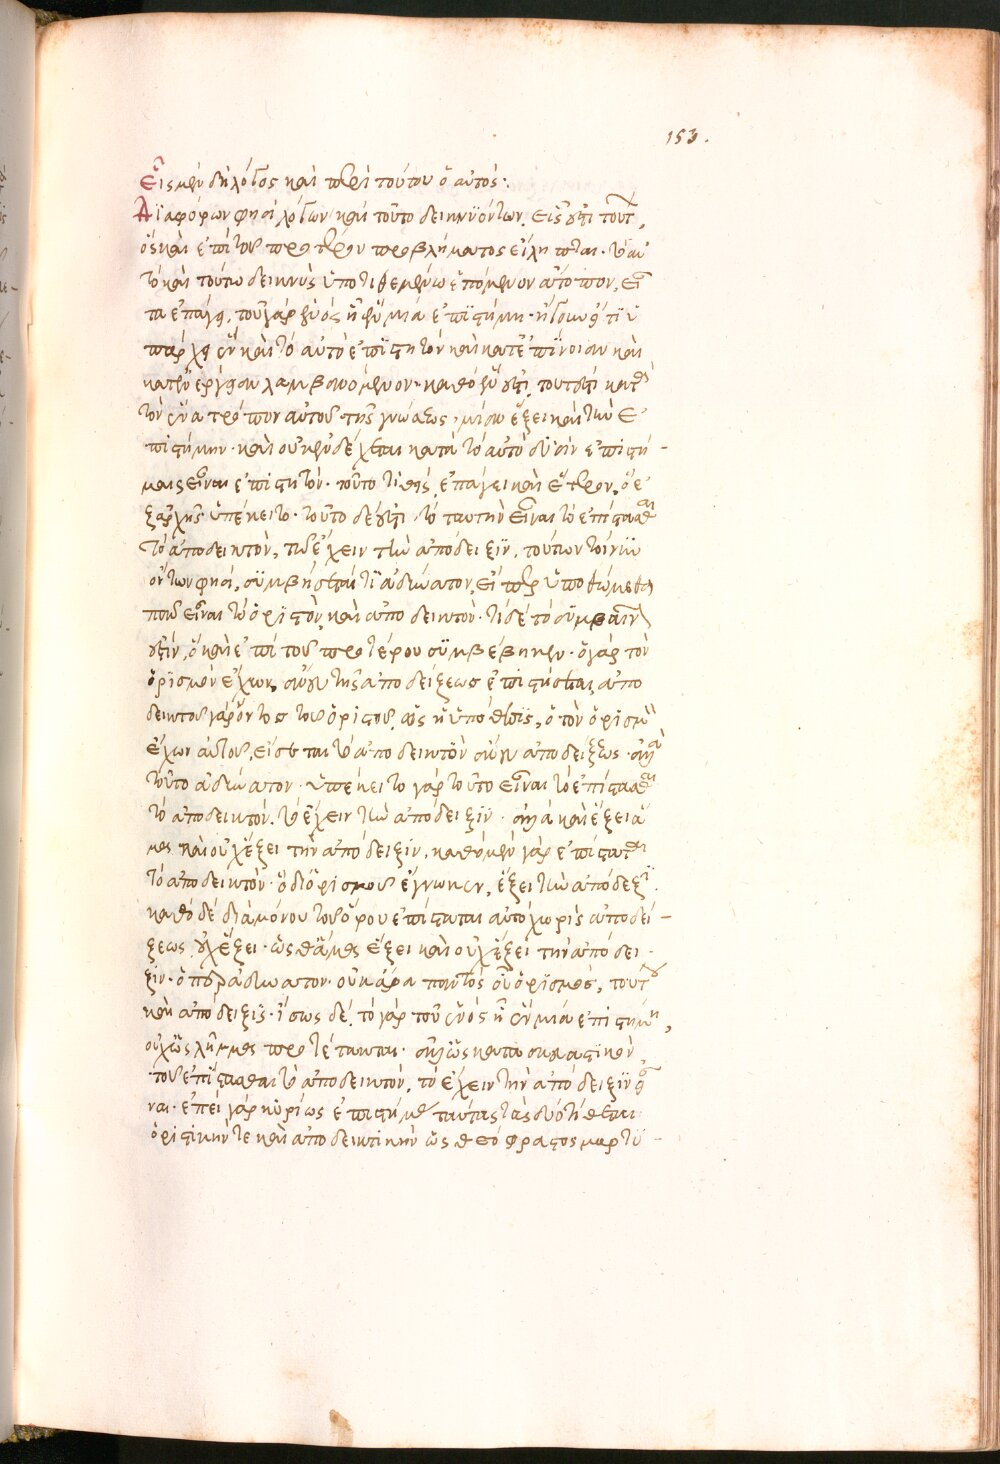 153.
Εἷς μὲν δὴ λόγος καὶ περὶ τούτου ὁ αὐτός:
Διαφόρων φησὶ λόγων καὶ τοῦτο δεικνυόντων, εἷς ἐστι τούτ,
ὃς καὶ ἐπὶ τοῦ προτέρου προβλήματος εἴληπται. τὸ αὐ
τὸ καὶ τούτω δεικνὺς ὑποτιθεμένω ἑπόμενον ἄτοπον, εἶ
τα ἐπάγει, τοῦ γὰρ ἑνὸς ᾗ ἓν μία ἐπιστήμη. ἤγουν ὅτι ὑ
πάρχει ἓν καὶ τὸ αὐτὸ ἐπιστητὸν καὶ κατ' ἐπίνοιαν καὶ
κατ' ἐνέργειαν λαμβανόμενον. καθὸ ἕν ἐστι, τουτέστι κατὰ
τὸν ἕνα τρόπον αὐτοῦ τῆς γνώσεως, μίαν ἕξει καὶ τὴν ἐ
πιστήμην. καὶ οὐκ ἐνδέχεται κατὰ τὸ αὐτὸ δυσὶν ἐπιστή-
μαις εἶναι ἐπιστητόν. τοῦτο τιθεὶς, ἐπάγει καὶ ἕτερον, ὃ ἐ
ξαρχῆς ὑπέκειτο. τοῦτο δέ ἐστι τὸ ταυτὸν εἶναι τὸ ἐπίστασθαι
τὸ ἀποδεικτὸν, τῶ ἔχειν τὴν ἀπόδειξιν. τούτων τοίνυν
ὄντων φησὶ, συμβήσεταί τι ἀδύνατον, εἴπερ ὑποθώμεθα
παν εἶναι τὸ ὁριστὸν, καὶ ἀποδεικτὸν. τί δὲ τὸ συμβαῖνον
ἐστίν, ὃ καὶ ἐπὶ τοῦ προτέρου συμβέβηκεν. ὁ γὰρ τὸν
ὁρισμὸν ἔχων, ἄνευ τῆς ἀποδείξεως ἐπιστήσεται, ἀπο
δεικτοῦ γὰρ ὄντος τοῦ ὁριστοῦ, ὡς ἡ ὑπόθεσις, ὁ τὸν ὁρισμὸν
ἔχων αὐτοῦ, εἴσεται τὸ ἀποδεικτὸν ἄνευ ἀποδείξεως. ἀλλὰ
τοῦτο ἀδύνατον. ὑπέκειτο γὰρ τοῦτο εἶναι τὸ ἐπίστασθαι
τὸ ἀποδεικτόν. τὸ ἔχειν τὴν ἀπόδειξιν. ἀλλὰ καὶ ἕξει ἅ
μα καὶ οὐχ ἕξει τὴν ἀπόδειξιν, καθὸ μὲν γὰρ ἐπίσταται
τὸ ἀποδεικτὸν. ὃ δι ὁρισμοῦ ἔγνωκεν, ἕξει τὴν ἀπόδεξιν.
καθὸ δὲ διὰ μόνου τοῦ ὅρου ἐπίσταται αὐτὸ χωρὶς ἀποδεί-
ξεως, οὐχ ἕξει. ὥσθ' ἅμα ἕξει καὶ οὐχ ἕξει τὴν ἀπόδει
ξιν. ὅπερ ἀδύνατον. οὐκ ἄρα παντὸς οὗ ὁρισμὸς, τούτου
καὶ ἀπόδειξις. ἴσως δὲ, τὸ γὰρ τοῦ ἑνὸς ᾗ ἓν μία ἐπιστήμη,
οὐχ ὡς λῆμμα προτέτακται. ἀλλ' ὡς κατασκευαστικὸν
τοῦ ἐπίστασθαι τὸ ἀποδεικτὸν, τὸ ἔχειν τὴν ἀπόδειξιν εἶ
ναι. ἐπεὶ γὰρ κυρίως ἐπιστήμας ταύτας τὰς δύο τίθεται
ὁριστικήν τε καὶ ἀποδεικτικὴν ὡς θεόφραστος μαρτυ-